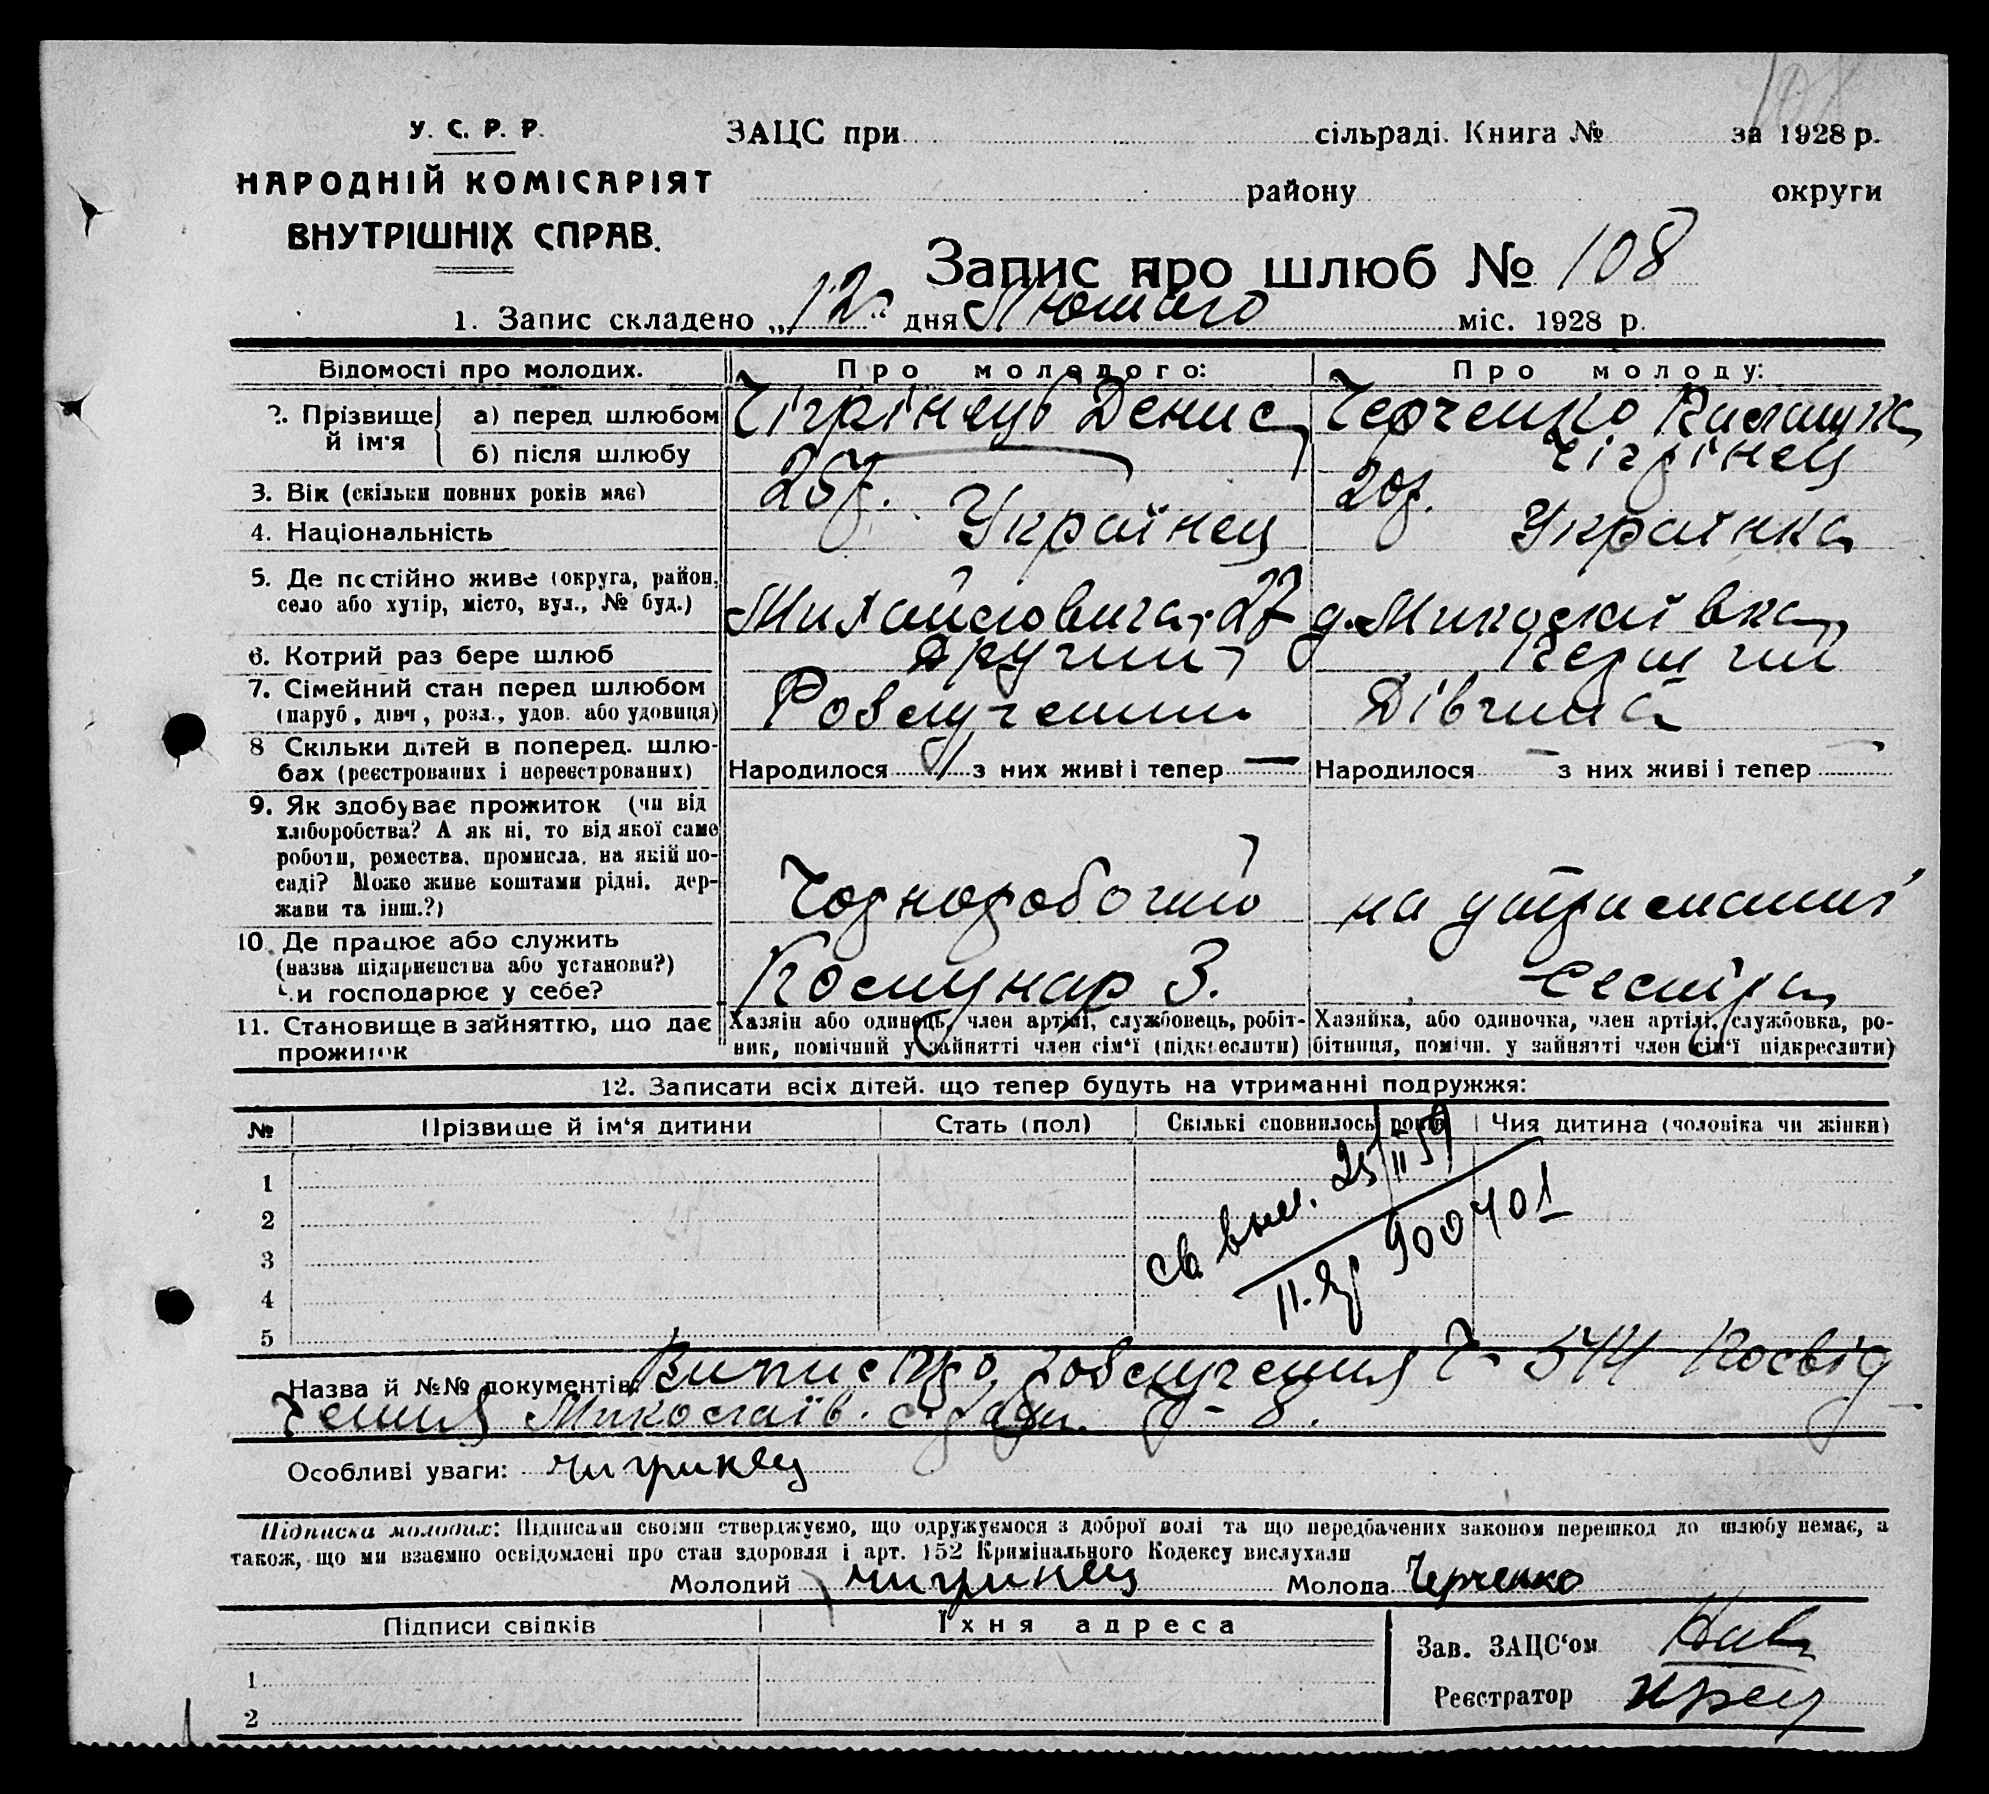 108
У. С. Р. Р.
НАРОДНІЙ КОМІСАРІЯТ
ВНУТРІШНІХ СПРАВ.
ЗАЦС при сільраді. Книга № за 1928 р.
району округи
Запис про шлюб № 108
1. Запис складено „12“ дня Лютого міс. 1928 р.
Відомості про молодих. Про молодого: Про молоду:
2. Прізвище й ім'я а) перед шлюбом Чігрінець Денис Черченко
б) після шлюбу Чігрінец
3. Вік (скільки повних років має) 25р. 20р.
4. Національність Українец Українка
5. Де постійно живе (округа, район, село або хутір, місто, вул., № буд.) 27 Миколаївка
6. Котрий раз бере шлюб Другий Перший
7. Сімейний стан перед шлюбом (паруб., дівч., розл., удов. або удовиця) Розлучений Дівчина
8 Скільки дітей в поперед. шлюбах (реєстрованих і нереєстрованих) Народилося 1 з них живі і тепер — Народилося — з них живі і тепер —
9. Як здобуває прожиток (чи від
хліборобства? А як ні, то від якої саме
роботи, ремества, промисла, на якій по-
саді? Може живе коштами рідні, дер-
жави та інш.?) Чорноробочий на утриманні
10. Де працює або служить
(назва підприємства або установи?)
Чи господарює у себе? Комунар З. Сестра
11. Становище в зайняттю, що дає прожиток
Хазяїн або одинець, член артілі, службовець, робіт-
ник, помічний у зайнятті член сім'ї (підкреслити)
Хазяйка, або одиночка, член артілі, службовка, ро-
бітниця, помічн. у зайнятті член сім'ї підкреслити)
12. Записати всіх дітей, що тепер будуть на утриманні подружжя:
№ Прізвище й ім'я дитини Стать (пол) Скількі сповнилось років Чия дитина (чоловіка чи жінки)
1
2
3
4
5
св. выд. 25/II 59
900401
Назва й №№ документів: Випис про розлучення Ч- 544 Посвід
чення Миколаїв. с/ради. - 8.
Особливі уваги: чигринец
Підписка молодих: Підписами своїми стверджуємо, що одружуємося з доброї волі та що передбачених законом перешкод до шлюбу немає, а
також, що ми взаємно освідомлені про стан здоровля і арт. 152 Кримінального Кодексу вислухали
Молодий чигринец Молода Черченко
Підписи свідків Їхня адреса
Зав. ЗАЦС'ом
Реєстратор
1
2